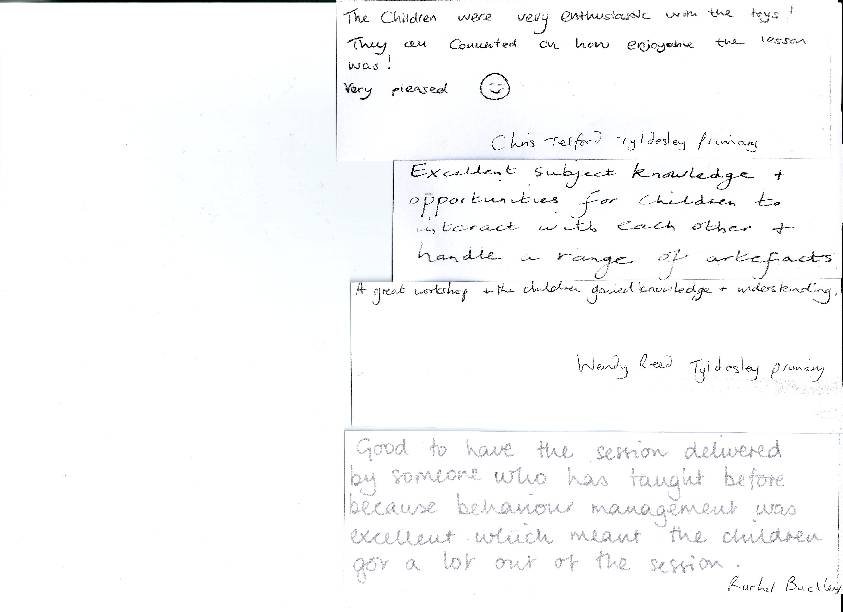 The Children were very enthusiastic with the toys!
They all Commented on how enjoyable the lesson
was!
Very pleased
Chris Telford Tyldesley primary
Excellent subject knowledge +
opportunities for children to
interact with each other +
handle a range of artefacts
A great workshop + the children gained knowledge + understanding.
Wendy Reed Tyldesley primary
Good to have the session delivered
by someone who has taught before
because behaviour management was
excellent which meant the children
got a lot out of the session.
Rachel Buckley